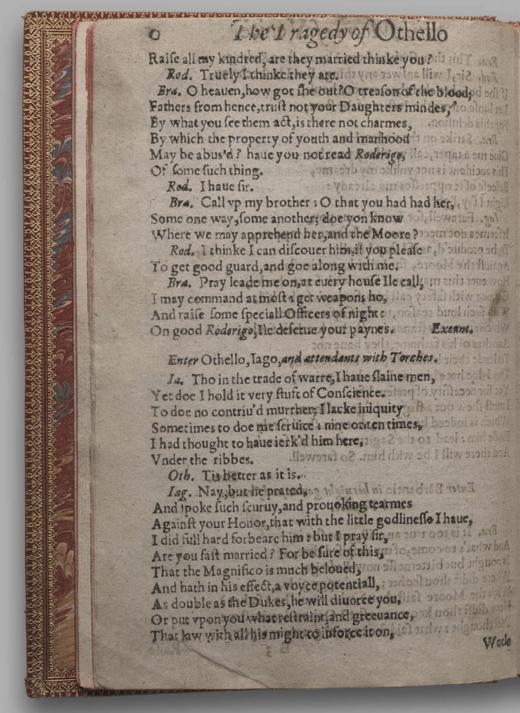 6 The Tragedy of Othello
Raiſe all my kindred, are they married thinke you?
Rod. Truely I thinke they are.
Bra. O heauen, how got ſhe out? O treaſon of the blood;
Fathers from hence, truſt not your Daughters mindes,
By what you ſee them act, is there not charmes,
By which the property of youth and manhood
May be abus'd? haue you not read Roderigo,
Of ſome ſuch thing.
Rod. I haue ſir.
Bra. Call vp my brother: O that you had had her,
Some one way, ſome another; doe yon know
Where we may apprehend her, and the Moore?
Rod. I thinke I can diſcouer him, if you pleaſe
To get good guard, and goe along with me.
Bra. Pray leade me on, at euery houſe Ile call,
I may command at moſt: get weapons ho,
And raiſe ſome ſpeciall Officers of night:
On good Roderigo, Ile deſerue your paynes. Exeunt.
Enter Othello, Iago, and attendants with Torches.
Ia. Tho in the trade of warre, I haue ſlaine men,
Yet doe I hold it very ſtuft of Conſcience.
To doe no contriu'd murther; I lacke iniquity
Sometimes to doe me ſeruice: nine or ten times,
I had thought to haue ierk'd him here,
Vnder the ribbes.
Oth. Tis better as it is.
Iag. Nay, but he prated,
And ſpoke ſuch ſcuruy, and prouoking tearmes
Againſt your Honor, that with the little godlineſſe I haue,
I did full hard forbeare him: but I pray ſir,
Are you faſt married? For be ſure of this,
That the Magnifico is much beloued,
And hath in his effect, a voyce potentiall,
As double as the Dukes, he will diuorce you,
Or put vpon you what reſtraint, and greeuance,
That law with all his might to inforce it on,